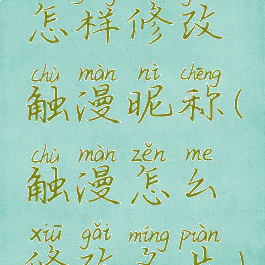 怎样修改
chù màn nì chēng
触漫昵称(
chù màn zěn me
触漫怎么
xiū gǎi míng piàn
修改名片)